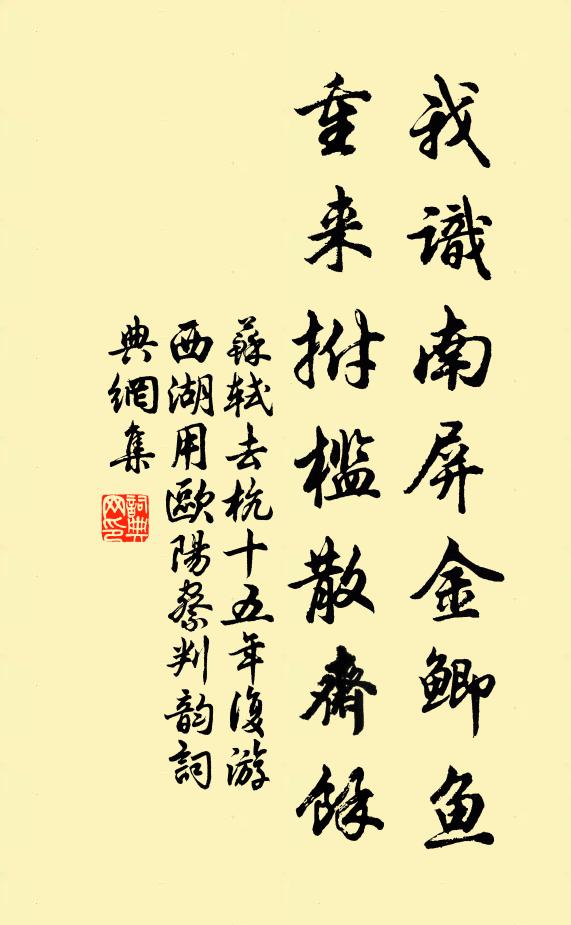 我識南屏金鲫鱼
重来拊檻散齋餘
蘇軾去杭十五年復游
西湖用歐陽察判韵詞
典網集
詞典
网印